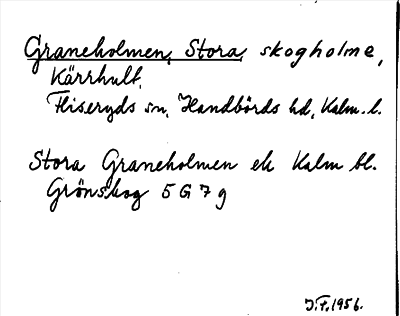 Graneholmen, Stora, skogholme,
Kärrhult,
Fliseryds sn, Handbörds hd, Kalm. l.
Stora Graneholmen ek Kalm bl.
Grönskog 5 G 7 g
J.F. 1956.